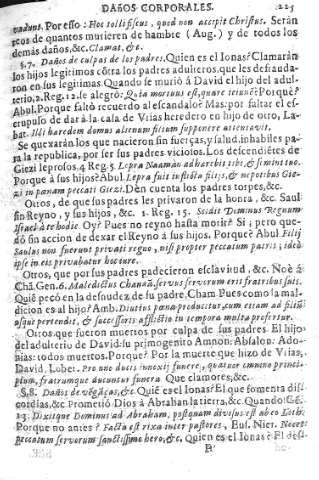 DAÑOS CORPORALES. 225
vadunt. Por esso: Hoc tolli fiscus, quod non accipit Christus. Serán
reos de quantos murieren de hambre (Aug.) y de todos los
demás daños, &c. Clamat, &c.
§.7. Daños de culpas de los padres. Quien es el Ionas? Clamarán
los hijos legitimos cõtra los padres adulteros, que les defrauda-
ron en sus legitimas. Quando se murió à David el hijo del adul-
terio, 2. Reg. 12. se alegrò: Quia mortuus est, quare ieiunẽ? Porquè?
Abul. Porque faltò recuerdo al escandalo? Mas: por faltar el es-
crupulo de dar à la casa de Vrias heredero en hijo de otro, La-
bat. Illi haredem domus alienum filium supponere attentavit.
Se quexarán los que nacieron sin fuerças, y salud, inhabiles pa-
ra la republica, por ser sus padres viciosos. Los descendiẽtes de
Giezi leprosos. 4. Reg. 5. Lepra Naaman adhærebit tibi, & semini tuo.
Porquè à sus hijos? Abul. Lepra fuit inflicta filijs, & nepotibus Gie-
zi in pœnam peccati Giezi. Dèn cuenta los padres torpes, &c.
Otros, de que sus padres les privaron de la honra, &c. Saul
sin Reyno, y sus hijos, &c. 1. Reg. 15. Scidit Dominus Regnum
Israel à te hodie. Oy? Pues no reyno hasta morir? Si; pero que-
dó sin accion de dexar el Reyno à sus hijos. Porquè? Abul. Filij
Saulus non fuerunt privati regno, nisi propter peccatum patris; ideò
ipse in eis privabatur honore.
Otros, que por sus padres padecieron esclavitud, &c. Noè à
Chã. Gen. 6. Maledictus Chanaã, servus servorum erit fratribus suis.
Quiẽ pecò en la desnudez de su padre, Cham Pues como la mal-
dicion es al hijo? Amb. Diutius pœna producitur, cum etiam ad filiũ
usque pertendit, & successoris afflictio in tempora multa profertur.
Otros que fueron muertos por culpa de sus padres. El hijo
del adulterio de David: su primogenito Amnon: Absalon: Ado-
nias: todos muertos. Porquè? Por la muerte que hizo de Vrias,
David. Lober. Pro uno ducis innoxij funere, quatuor
plum, fratrumque ducuntur funera Que clamores, &c.
§.8. Daños de vẽgãças, &c. Quiẽ es el Ionas? El que fomenta dis-
cordias, &c. Prometiò Dios à Abrahan la tierra, &c. Quando: Gẽ.
13. Dixitque Dominus ad Abraham, postquam divisus est ab eo Loth:
Porque no antes? Facta est rixa inter pastores, Eus. Nier. Nocens
peccatum servorum sanctissimo hero, &c. Quien es el Ionas? El desi-
P